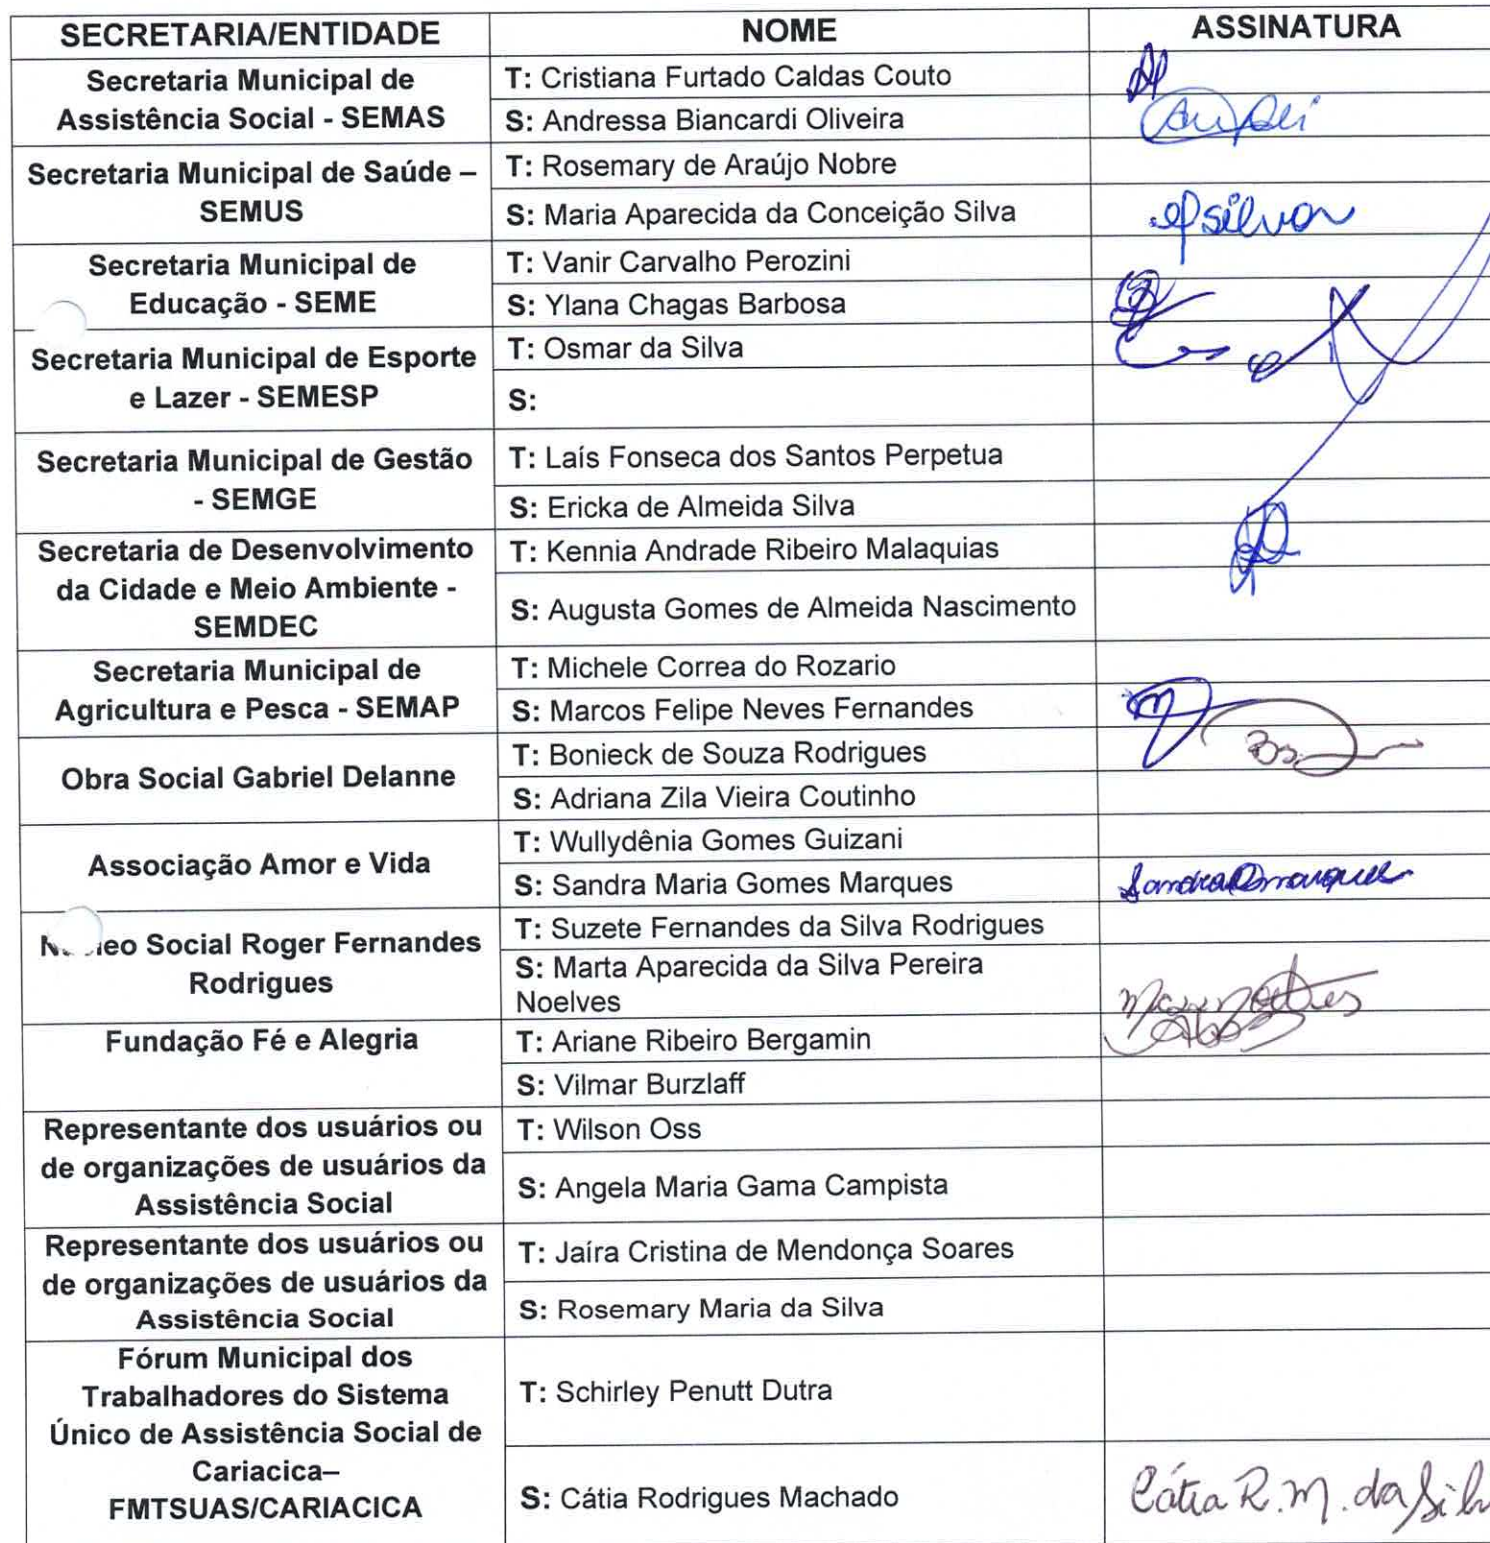 SECRETARIA/ENTIDADE NOME ASSINATURA
Secretaria Municipal de
Assistência Social - SEMAS
T: Cristiana Furtado Caldas Couto
S: Andressa Biancardi Oliveira
Secretaria Municipal de Saúde –
SEMUS
T: Rosemary de Araújo Nobre
S: Maria Aparecida da Conceição Silva
Secretaria Municipal de
Educação - SEME
T: Vanir Carvalho Perozini
S: Ylana Chagas Barbosa
Secretaria Municipal de Esporte
e Lazer - SEMESP
T: Osmar da Silva
S:
Secretaria Municipal de Gestão
- SEMGE
T: Laís Fonseca dos Santos Perpetua
S: Ericka de Almeida Silva
Secretaria de Desenvolvimento
da Cidade e Meio Ambiente -
SEMDEC
T: Kennia Andrade Ribeiro Malaquias
S: Augusta Gomes de Almeida Nascimento
Secretaria Municipal de
Agricultura e Pesca - SEMAP
T: Michele Correa do Rozario
S: Marcos Felipe Neves Fernandes
Obra Social Gabriel Delanne
T: Bonieck de Souza Rodrigues
S: Adriana Zila Vieira Coutinho
Associação Amor e Vida
T: Wullydênia Gomes Guizani
S: Sandra Maria Gomes Marques
Social Roger Fernandes
Rodrigues
T: Suzete Fernandes da Silva Rodrigues
S: Marta Aparecida da Silva Pereira
Noelves
Fundação Fé e Alegria
T: Ariane Ribeiro Bergamin
S: Vilmar Burzlaff
Representante dos usuários ou
de organizações de usuários da
Assistência Social
T: Wilson Oss
S: Angela Maria Gama Campista
Representante dos usuários ou
de organizações de usuários da
Assistência Social
T: Jaíra Cristina de Mendonça Soares
S: Rosemary Maria da Silva
Fórum Municipal dos
Trabalhadores do Sistema
Único de Assistência Social de
Cariacica–
FMTSUAS/CARIACICA
T: Schirley Penutt Dutra
S: Cátia Rodrigues Machado
Cátia R. M. da